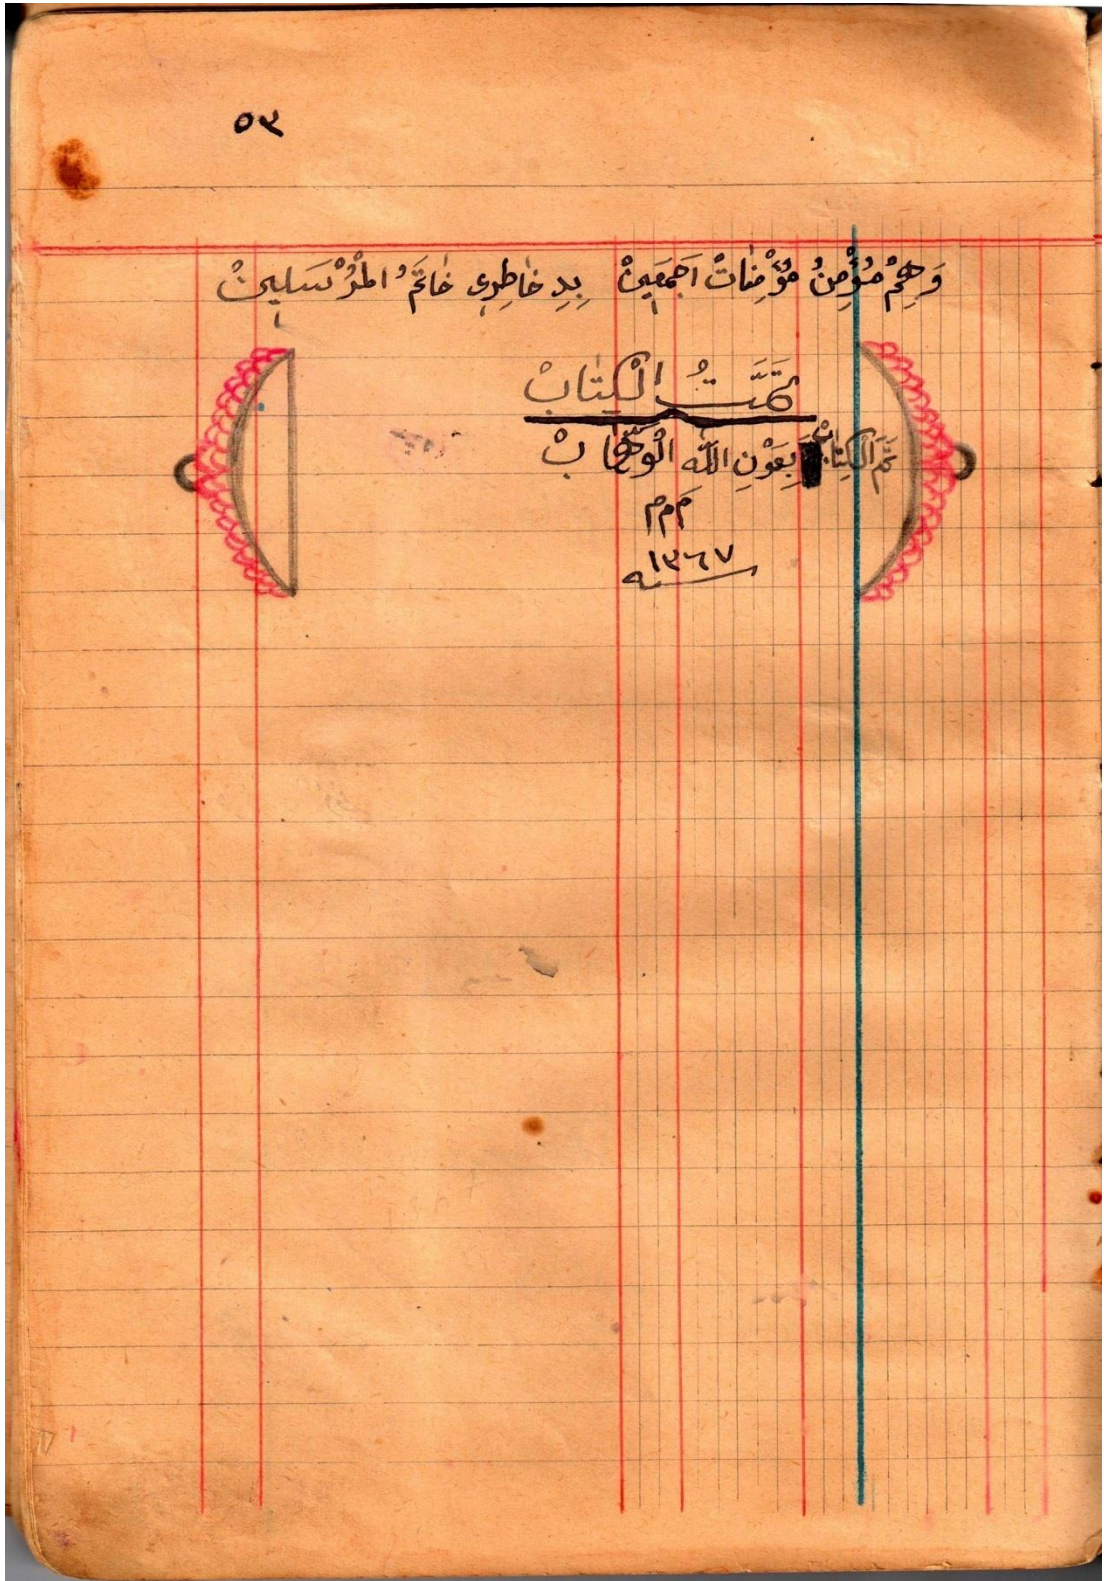 ٥٣
وَهِمْ مُؤْمِنُ مُؤْمِنَاتْ اَجْمَعِينْ بِدِ خَاطِرِي خَاتَمُ الْمُرْسَلِينْ
تَمَّتُ الْكِتَابْ
تَمَّ الْكِتَابْ بِعَوْنِ اللّٰهِ الْوَهَّابْ
م م م
١٣٦٧
سنه